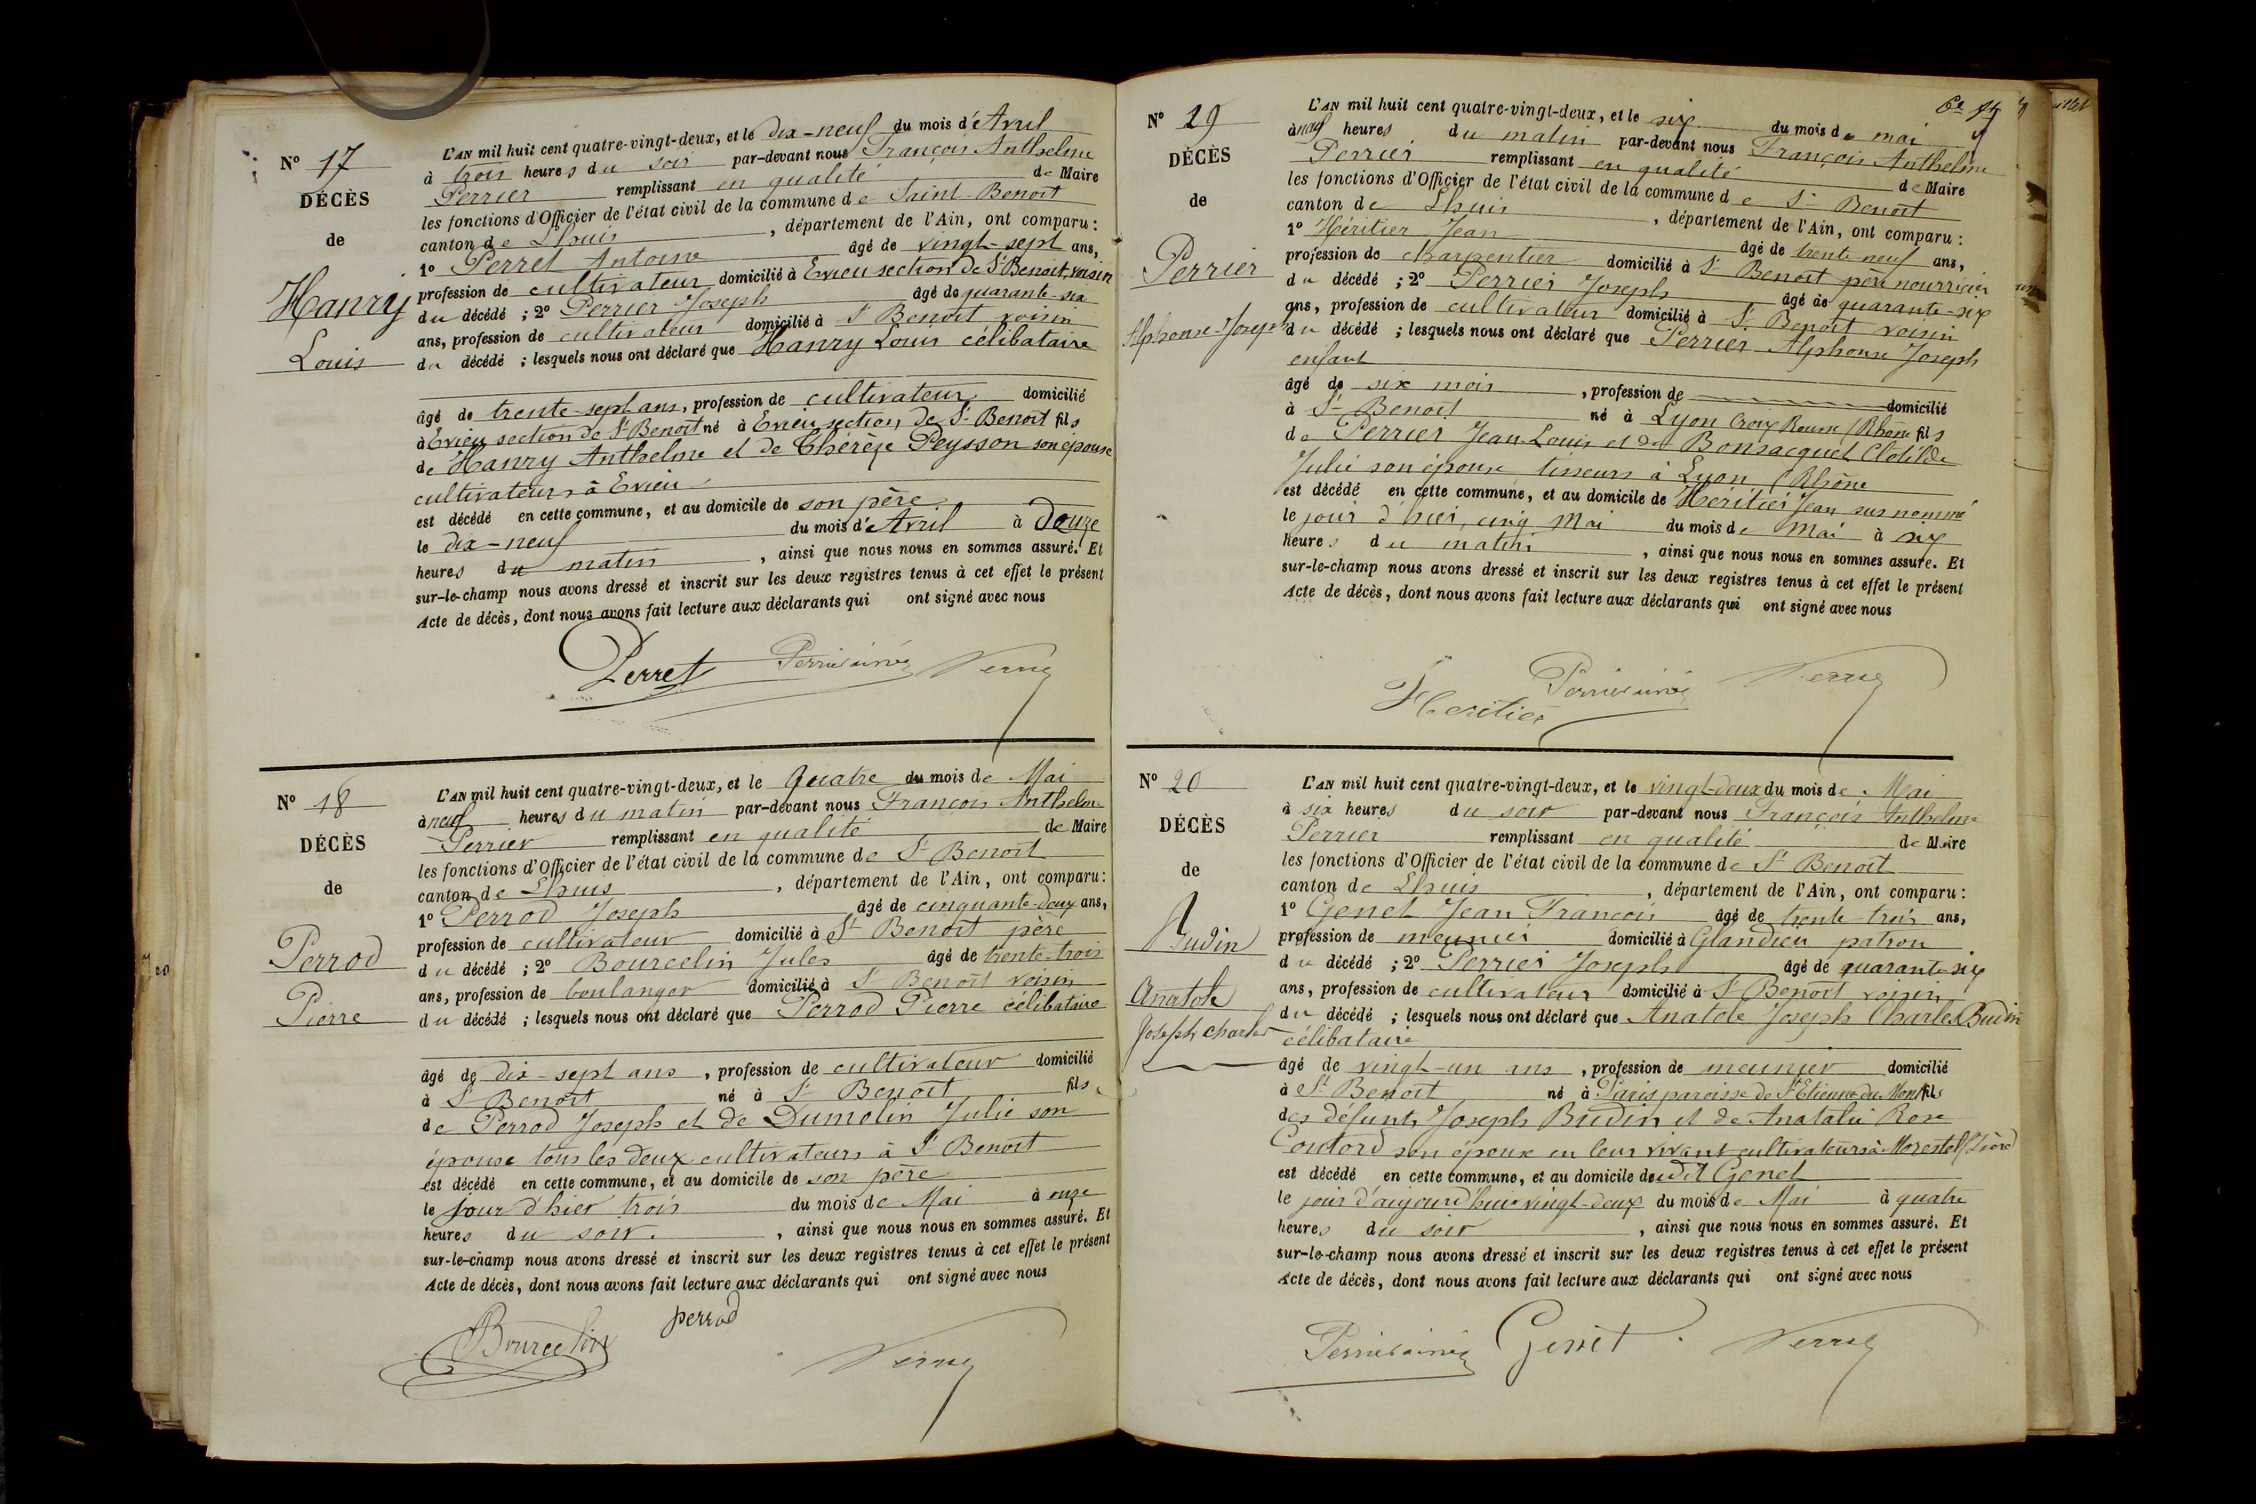 N° 17
DÉCÈS
de
Hanry
Louis
L'AN mil huit cent quatre-vingt-deux, et le dix-neuf du mois d'Avril
à trois heures du soir par-devant nous François Anthelme
Perrier remplissant en qualité de Maire
les fonctions d'Officier de l'état civil de la commune de Saint-Benoit
canton de Lhuis, département de l'Ain, ont comparu :
1° Perret Antoine âgé de vingt-sept ans,
profession de cultivateur domicilié à Evieu section de St Benoit, voisin
du décédé ; 2° Perrier Joseph âgé de quarante-six
ans, profession de cultivateur domicilié à St Benoit voisin
du décédé ; lesquels nous ont déclaré que Hanry Louis célibataire
âgé de trente-sept ans, profession de cultivateur domicilié
à Evieu section de St Benoit né à Evieu section de St Benoit fils
de Hanry Anthelme et de Thérèze Peysson son épouse
cultivateurs à Evieu
est décédé en cette commune, et au domicile de son père
le dix-neuf du mois d'Avril à Douze
heures du matin, ainsi que nous nous en sommes assuré. Et
sur-le-champ nous avons dressé et inscrit sur les deux registres tenus à cet effet le présent
Acte de décès, dont nous avons fait lecture aux déclarants qui ont signé avec nous
Perret Perrier ainé
N° 18
DÉCÈS
de
Perrod
Pierre
L'AN mil huit cent quatre-vingt-deux, et le Quatre du mois de Mai
à neuf heures du matin par-devant nous François Anthelme
Perrier remplissant en qualité de Maire
les fonctions d'Officier de l'état civil de la commune de St Benoit
canton de Lhuis, département de l'Ain, ont comparu :
1° Perrod Joseph âgé de cinquante-deux ans,
profession de cultivateur domicilié à St Benoit père
du décédé ; 2° Bourcelin Jules âgé de trente-trois
ans, profession de boulanger domicilié à St Benoit voisin
du décédé ; lesquels nous ont déclaré que Perrod Pierre célibataire
âgé de dix-sept ans, profession de cultivateur domicilié
à St Benoit né à St Benoit fils
de Perrod Joseph et de Dumolin Julie son
épouse tous les deux cultivateurs à St Benoit
est décédé en cette commune, et au domicile de son père
le jour d'hier trois du mois de Mai à onze
heures du soir, ainsi que nous nous en sommes assuré. Et
sur-le-champ nous avons dressé et inscrit sur les deux registres tenus à cet effet le présent
Acte de décès, dont nous avons fait lecture aux déclarants qui ont signé avec nous
Bourcelin perrod
N° 19
DÉCÈS
de
Perrier
Alphonse-Joseph
L'AN mil huit cent quatre-vingt-deux, et le six du mois de mai
à neuf heures du matin par-devant nous François Anthelme
Perrier remplissant en qualité de Maire
les fonctions d'Officier de l'état civil de la commune de St Benoit
canton de Lhuis, département de l'Ain, ont comparu :
1° Héritier Jean âgé de trente-neuf ans,
profession de charpentier domicilié à St Benoit père nourricier
du décédé ; 2° Perrier Joseph âgé de quarante-six
ans, profession de cultivateur domicilié à St Benoit voisin
du décédé ; lesquels nous ont déclaré que Perrier Alphonse Joseph
enfant
âgé de six mois, profession de domicilié
à St Benoit né à Lyon Croix Rousse (Rhône fils
de Perrier Jean-Louis et de Bonsacquet Clotilde
Julie son épouse tisseurs à Lyon (Rhône
est décédé en cette commune, et au domicile de Héritier Jean sus nommé
le jour d'hier, cinq Mai du mois de Mai à six
heures du matin, ainsi que nous nous en sommes assuré. Et
sur-le-champ nous avons dressé et inscrit sur les deux registres tenus à cet effet le présent
Acte de décès, dont nous avons fait lecture aux déclarants qui ont signé avec nous
Heritier Perrier ainé
N° 20
DÉCÈS
de
Budin
Anatole
Joseph Charles
L'AN mil huit cent quatre-vingt-deux, et le vingt-deux du mois de Mai
à six heures du soir par-devant nous François Anthelme
Perrier remplissant en qualité de Maire
les fonctions d'Officier de l'état civil de la commune de St Benoit
canton de Lhuis, département de l'Ain, ont comparu :
1° Genet Jean François âgé de trente-trois ans,
profession de meunier domicilié à Glandieu patron
du décédé ; 2° Perrier Joseph âgé de quarante-six
ans, profession de cultivateur domicilié à St Benoit voisin
du décédé ; lesquels nous ont déclaré que Anatole Joseph Charles Budin
célibataire
âgé de vingt-un ans, profession de meunier domicilié
à St Benoit né à Paris paroisse de St Etienne du Mont fils
des défunts Joseph Budin et de Anatalie Rose
Coutord son épouse en leur vivant cultivateurs à Morestel (Isère)
est décédé en cette commune, et au domicile dudit Genet
le jour d'aujourd'hui vingt-deux du mois de Mai à quatre
heures du soir, ainsi que nous nous en sommes assuré. Et
sur-le-champ nous avons dressé et inscrit sur les deux registres tenus à cet effet le présent
Acte de décès, dont nous avons fait lecture aux déclarants qui ont signé avec nous
Perrier ainé Genet